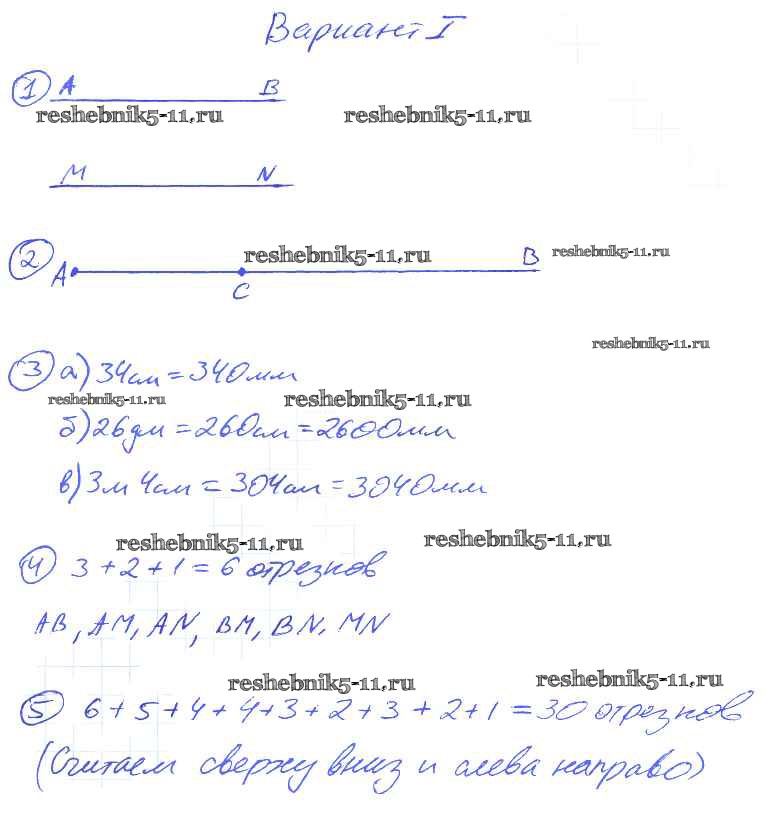 Вариант I
1 A B
reshebnik5-11.ru reshebnik5-11.ru
M N
2 A C B
reshebnik5-11.ru reshebnik5-11.ru
reshebnik5-11.ru
3 а) 34см = 340мм
reshebnik5-11.ru reshebnik5-11.ru
б) 26дм = 260см = 2600мм
в) 3м 4см = 304см = 3040мм
reshebnik5-11.ru reshebnik5-11.ru
4 3 + 2 + 1 = 6 отрезков
AB, AM, AN, BM, BN, MN
reshebnik5-11.ru reshebnik5-11.ru
5 6 + 5 + 4 + 4 + 3 + 2 + 3 + 2 + 1 = 30 отрезков
(Считаем сверху вниз и слева направо)